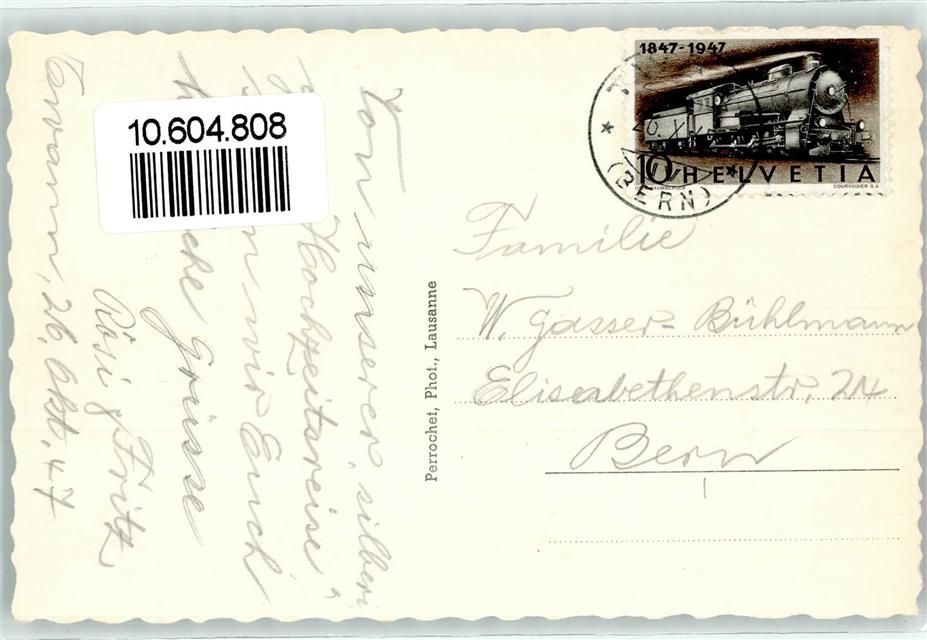 10.604.808
1847-1947
10 HELVETIA
COURVOISIER S.A
(BERN)
Von unserer „silberi
Hochzeitsreise"
wir Euch
Grüsse
Rösi & Fritz
26. Okt. 47
Perrochet, Phot., Lausanne
Familie
W. Gasser-Bühlmann
Elisabethenstr. 24
Bern